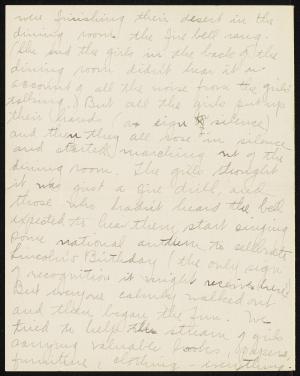 were finishing their desert in the
dining room the fire bell rang.
(We and the girls in the back of the
dining room didn't hear it on
account of all the noise from the girls'
talking.) But all the girls put up
their hands (a sign of silence)
and then they all rose in silence
and started marching out of the
dining room. The girls thought
it was just a fire drill, and
those who hadn't heard the bell
expected to hear them start singing
some national anthem to celebrate
Lincoln's Birthday (the only sign
of recognition it might receive here)
But everyone calmly walked out
and then began the fun. We
tried to help the stream of girls
carrying valuable books, papers,
furniture, clothing - everything.